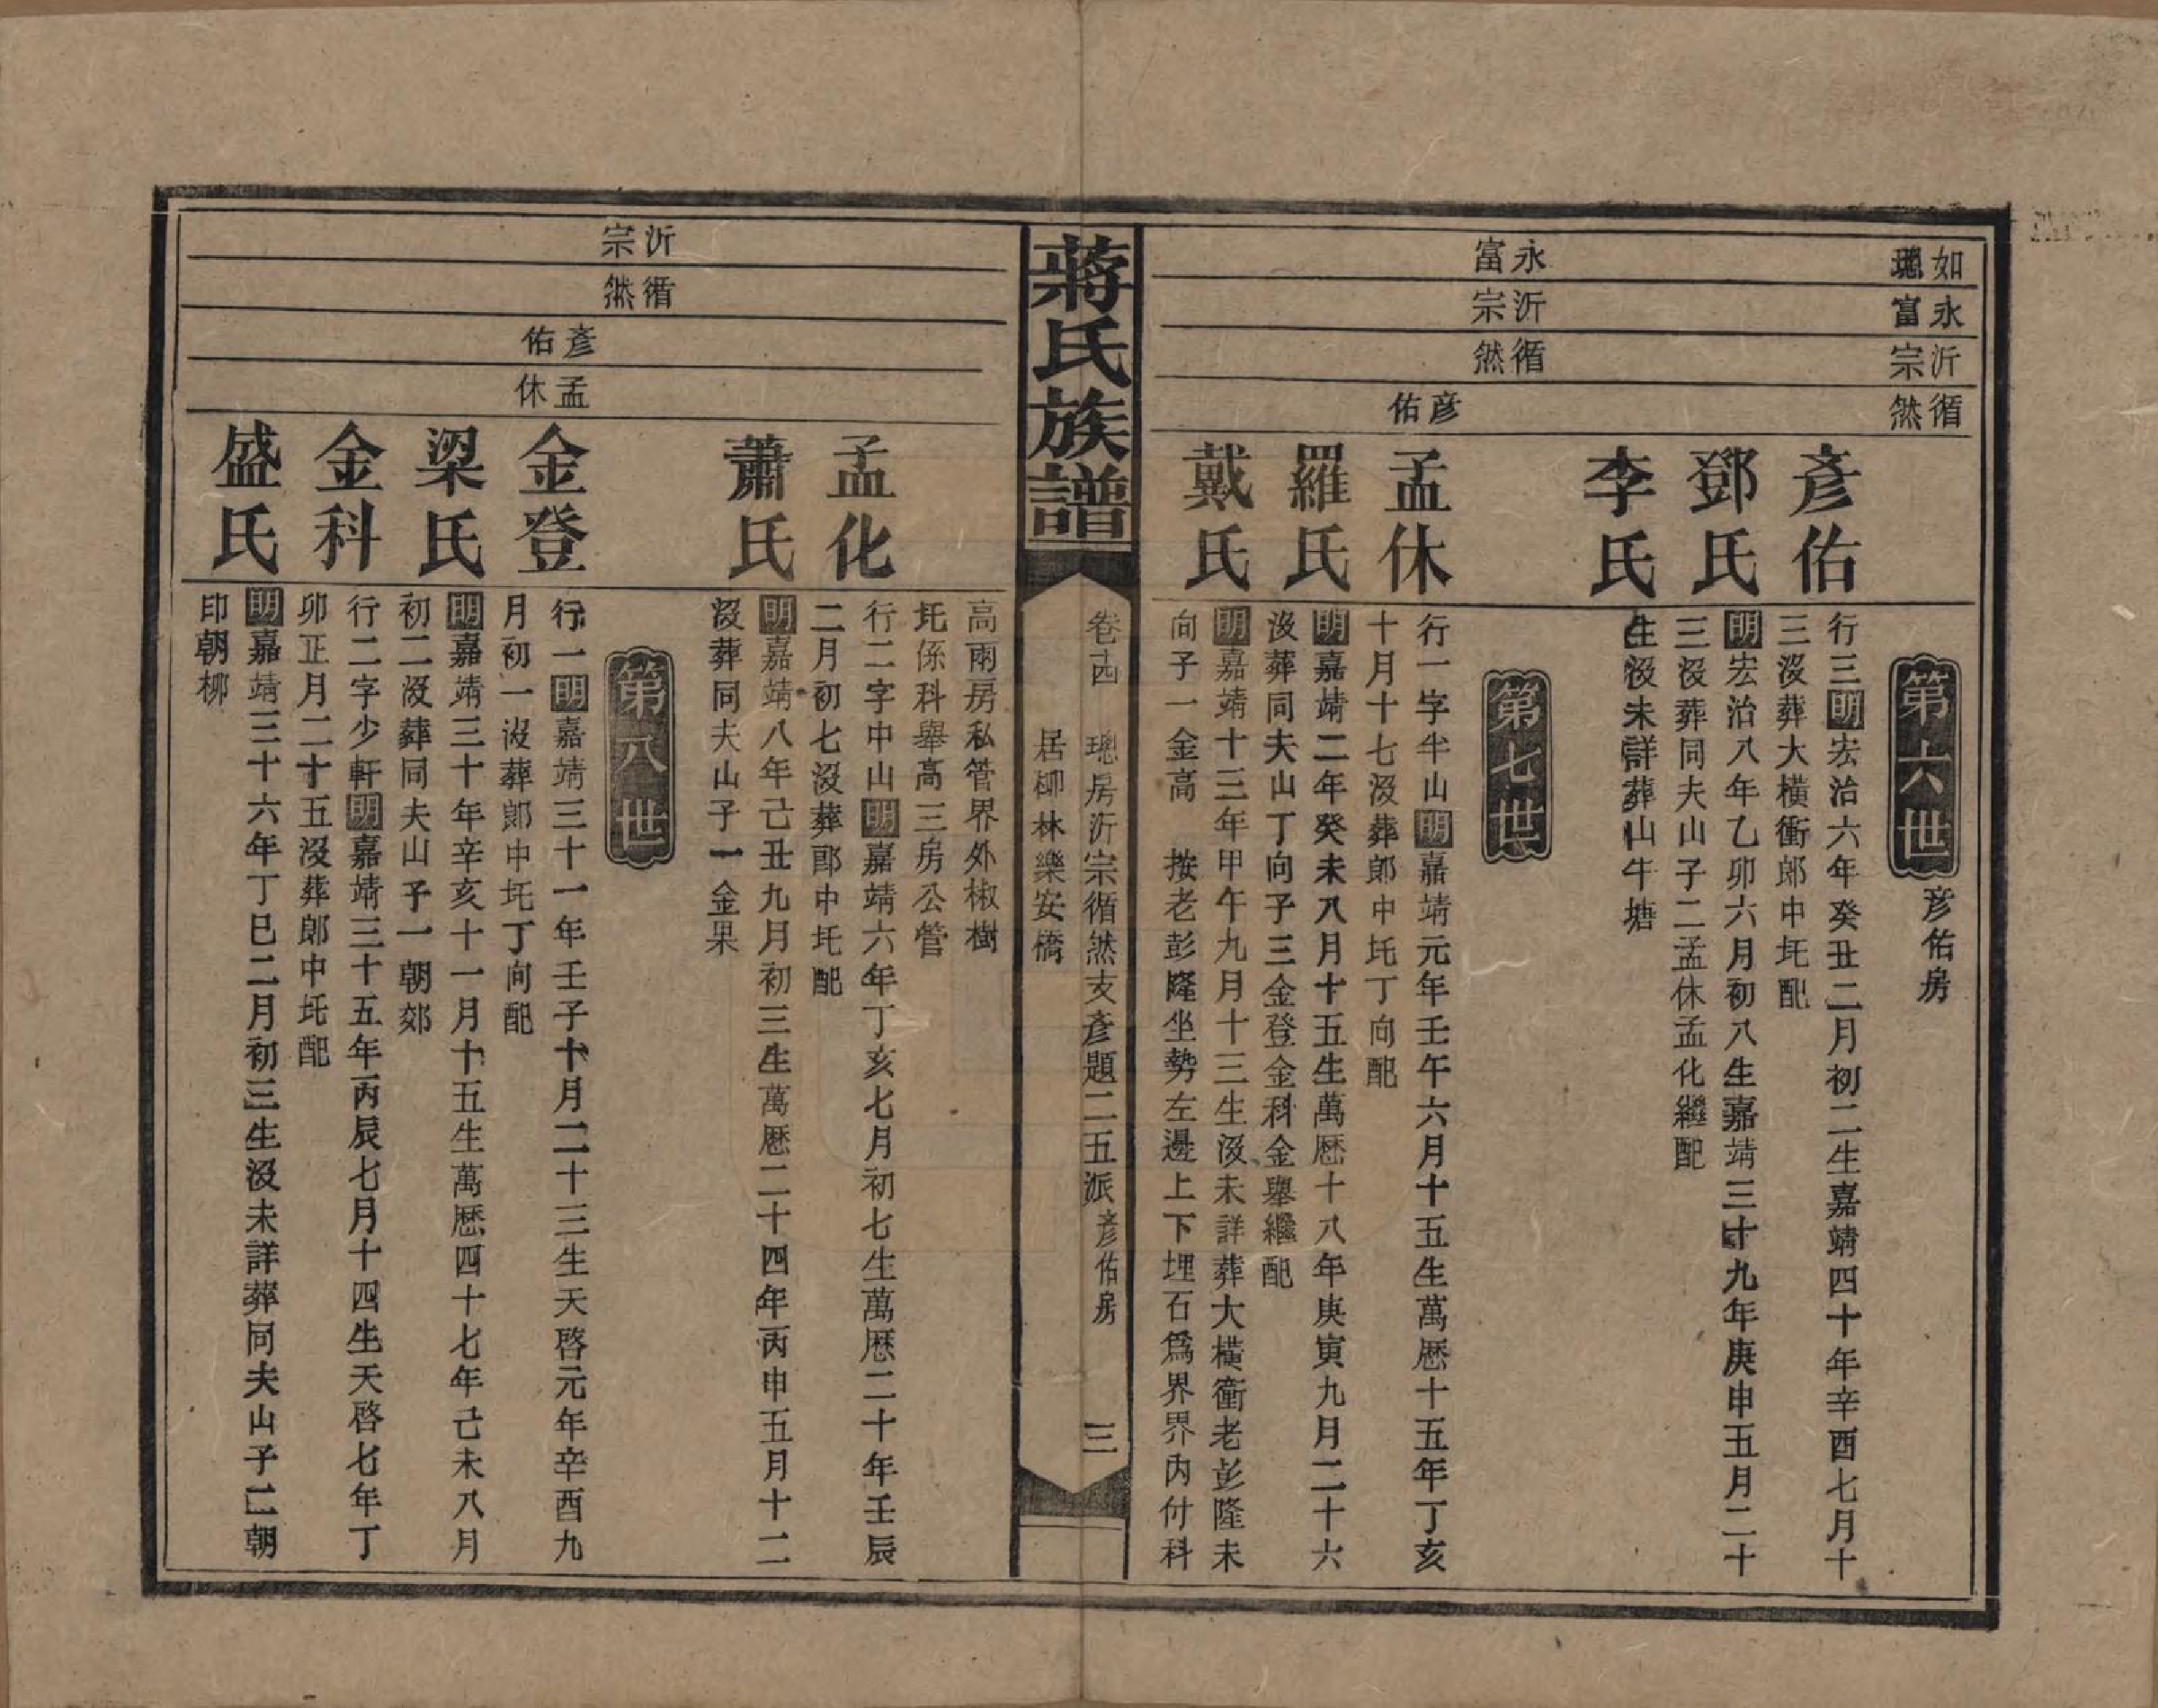 如璁
永富
沂宗
循然
第六世
彦佑房
彦佑
行三明宏治六年癸丑二月初二生嘉靖四十年辛酉七月十
三沒葬大橫衝郞中坃配
鄧氏
明宏治八年乙卯六月初八生嘉靖三十九年庚申五月二十
三沒葬同夫山子二孟休孟化繼配
李氏
生沒未詳葬山牛塘
永富
沂宗
循然
彦佑
第七世
孟休
行一字半山明嘉靖元年壬午六月十五生萬歷十五年丁亥
十月十七沒葬郞中坃丁向配
羅氏
明嘉靖二年癸未八月十五生萬歷十八年庚寅九月二十六
沒葬同夫山丁向子三金登金科金舉繼配
戴氏
明嘉靖十三年甲午九月十三生沒未詳葬大橫衝老彭隆未
向子一金高 按老彭隆坐勢左邊上下埋石爲界界內付科
蔣氏族譜
卷十四 璁房沂宗循然支彥題二五派彥佑房 三
居柳林樂安橋
高兩房私管界外椒樹
坃係科舉高三房公管
孟化
行二字中山明嘉靖六年丁亥七月初七生萬歷二十年壬辰
二月初七沒葬郞中坃配
蕭氏
明嘉靖八年己丑九月初三生萬歷二十四年丙申五月十二
沒葬同夫山子一金果
沂宗
循然
彦佑
孟休
第八世
金登
行一明嘉靖三十一年壬子十月二十三生天啓元年辛酉九
月初一沒葬郞中坃丁向配
梁氏
明嘉靖三十年辛亥十一月十五生萬歷四十七年己未八月
初二沒葬同夫山子一朝郊
金科
行二字少軒明嘉靖三十五年丙辰七月十四生天啓七年丁
卯正月二十五沒葬郞中坃配
盛氏
明嘉靖三十六年丁巳二月初三生沒未詳葬同夫山子二朝
印朝柳